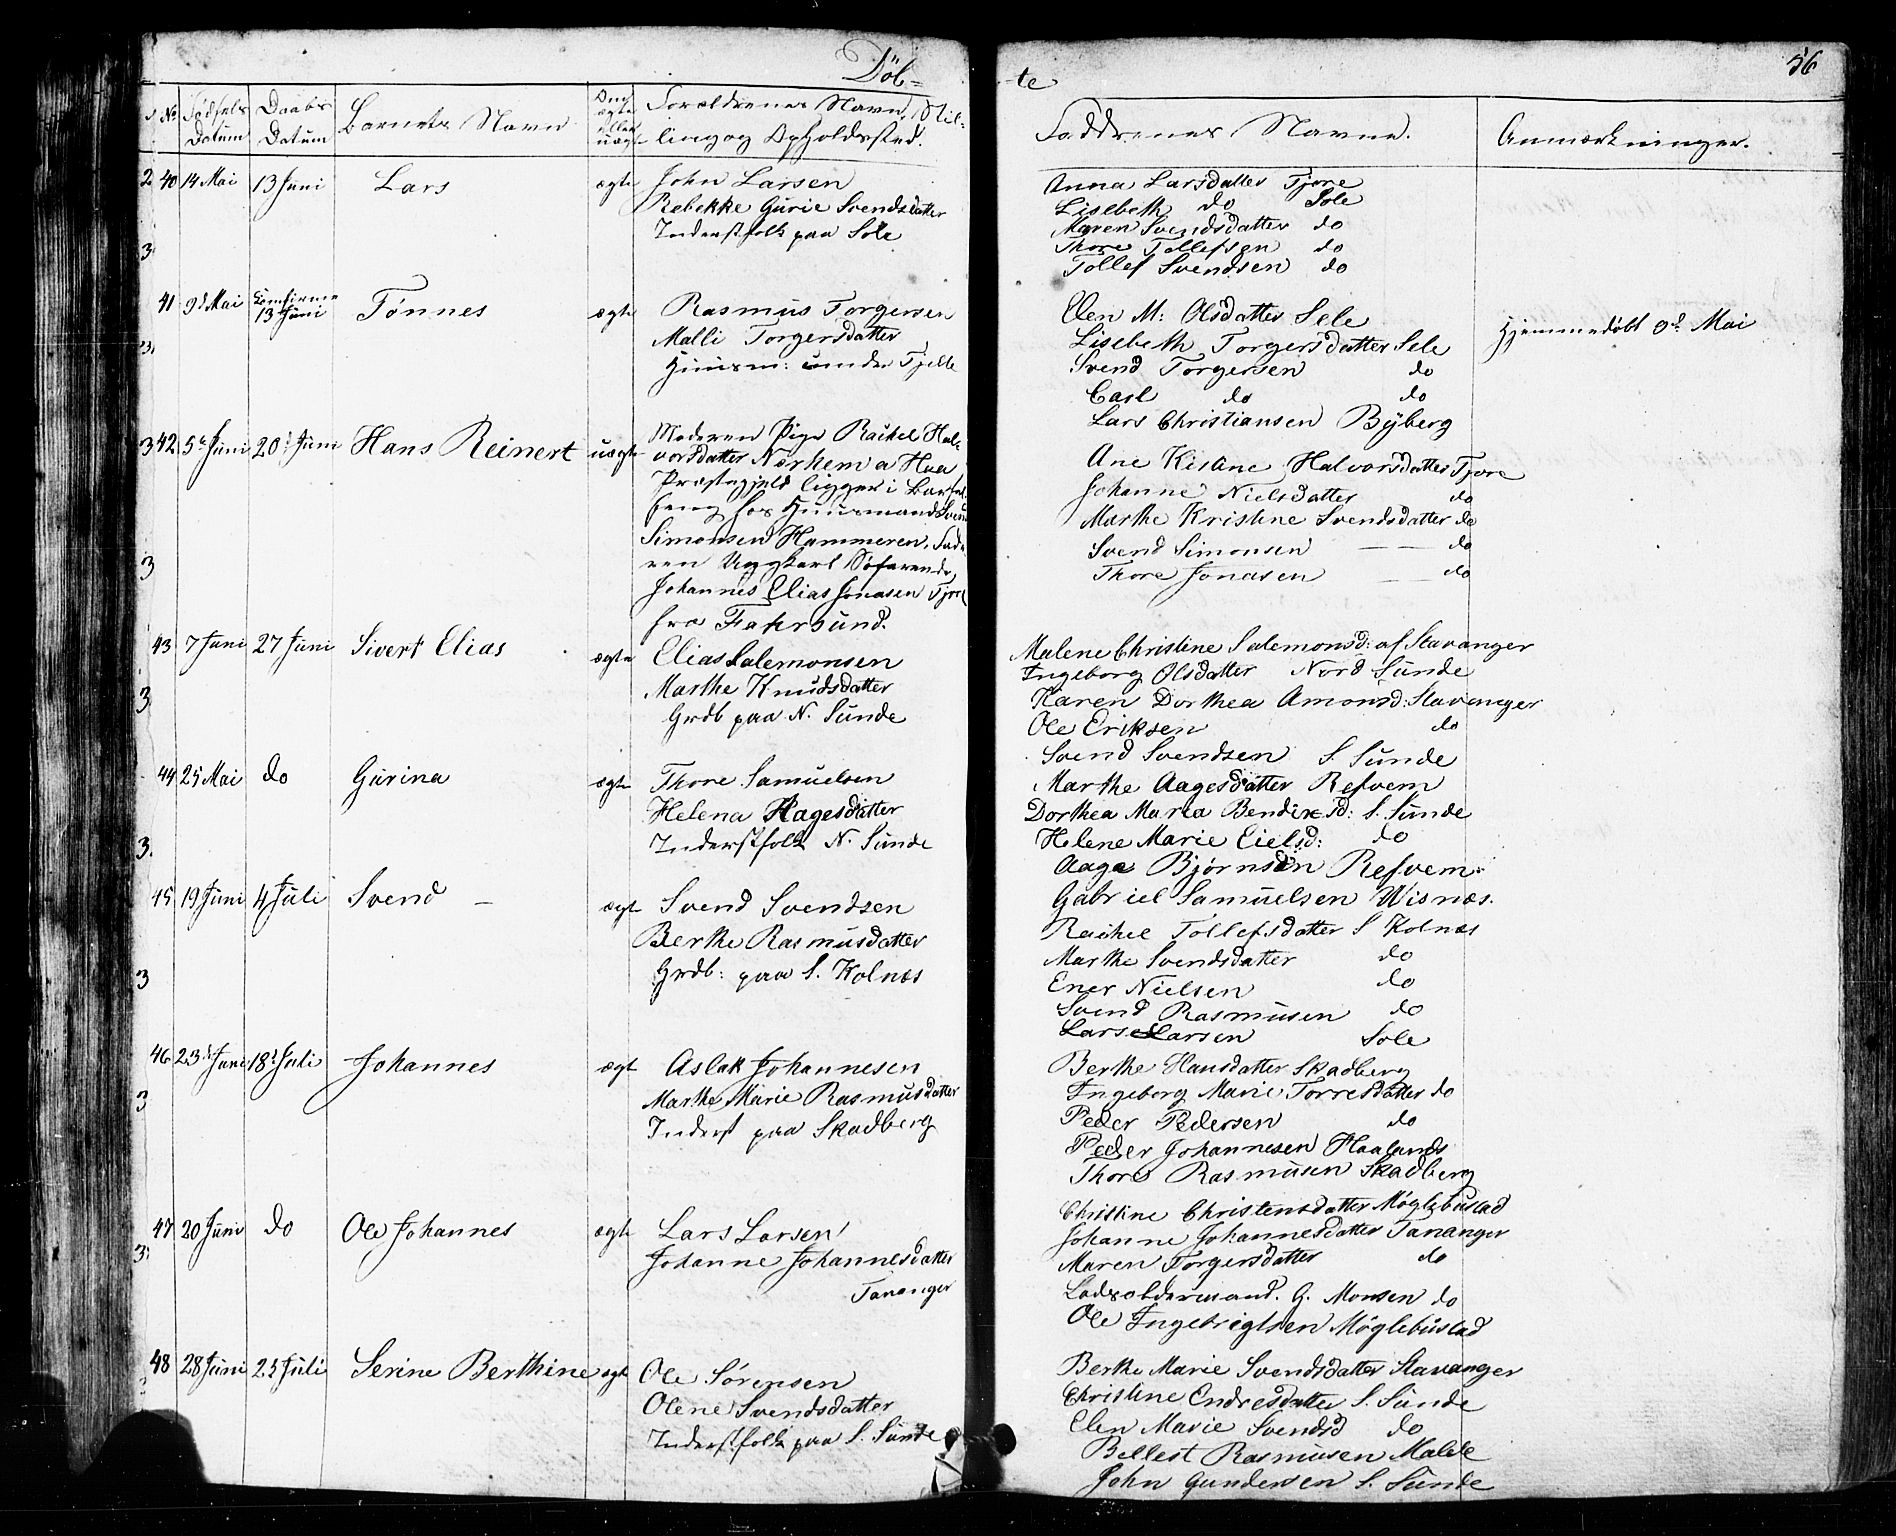 Döb-
te
56
No
Fødsels Datum
Daabs Datum
Barnets Navn
Om ægte eller uægte
Forældrenes Navn, Stilling og Opholdssted.
Faddrenes Navne.
Anmærkninger.
40 14 Mai 13 Juni Lars ægte John Larsen
Rebekke Gurie Svendsdatter
Inderstfolk paa Sole
Anna Larsdatter Tjore
Lisebeth do Sole
Maren Svendsdatter do
Thore Tollefsen do
Tollef Svendsen do
41 9d Mai Confirm 13 Juni Tønnes ægte Rasmus Torgersen
Malli Torgersdatter
Huusm: under Tjelle
Elen M: Olsdatter Sele
Lisebeth Torgersdatter Sele
Svend Torgersen do
Carl do do
Lars Christiansen Byberg
Hjemmedöbt 9d Mai
42 5te Juni 20d Juni Hans Reinert uægte Moderen Pige Rachel Hal-
vorsdatter Nærhem a Haa
Præstegjeld ligger i Barsel
seng hos Huusmand Svend
Simonsen Hammeren, Fade-
ren Ungkarl Søfarende
Johannes Elias Jonasen Tjore
fra Fahrsund.
Ane Kistine Halvorsdatter Tjore
Johanne Nielsdatter do
Marthe Kristine Svendsdatter do
Svend Simonsen — — do
Thore Jonasen — — do
43 7 Juni 27 Juni Sivert Elias ægte Elias Salemonsen
Marthe Knudsdatter
Grdb paa N. Sunde
Malene Christine Salemonsd: af Stavanger
Ingeborg Olsdatter Nord Sunde
Karen Dorthea Amonsd: Stavanger
Ole Eriksen do
Svend Svendsen S. Sunde
44 25 Mai do Gurina ægte Thore Samuelsen
Helena Aagesdatter
Inderstfolk N. Sunde
Marthe Aagesdatter Refvem
Dorthea Maria Bendixsd: S. Sunde
Helene Marie Eielsd: do
Aage Bjørnsen Refvem
Gabriel Samuelsen Wisnæs.
45 19 Juni 4 Juli Svend — ægt Svend Svendsen
Berthe Rasmusdatter
Grdb: paa S. Kolnæs
Rachel Tollefsdatter S Kolnæs
Marthe Svendsdatter do
Ener Nielsen do
Svend Rasmusen do
Lars Larsen Sole
46 23d Juni 18d Juli Johannes ægt Aslak Johannesen
Marthe Marie Rasmusdatter
Inderst paa Skadberg
Berthe Hansdatter Skadberg
Ingeborg Marie Torresdatter do
Peder Pedersen do
Peder Johannesen Haalands
Thore Rasmusen Skadberg
47 20 Juni do Ole Johannes ægte Lars Larsen
Johanne Johannesdatter
Tananger
Christine Christensdatter Møglebustad
Johanne Johannesdatter Tananger
Maren Torgersdatter do
Lodsoldermand. G. Monsen do
Ole Ingebrigtsen Møglebustad
48 28 Juni 25 Juli Serine Berthine ægt Ole Sørensen
Olene Svendsdatter
Inderstfolk paa S. Sunde
Berthe Marie Svendsdatter Stavanger
Christine Endresdatter S. Sunde
Elen Marie Svendsd do
Bellest Rasmusen Malde
John Gundersen S. Sunde